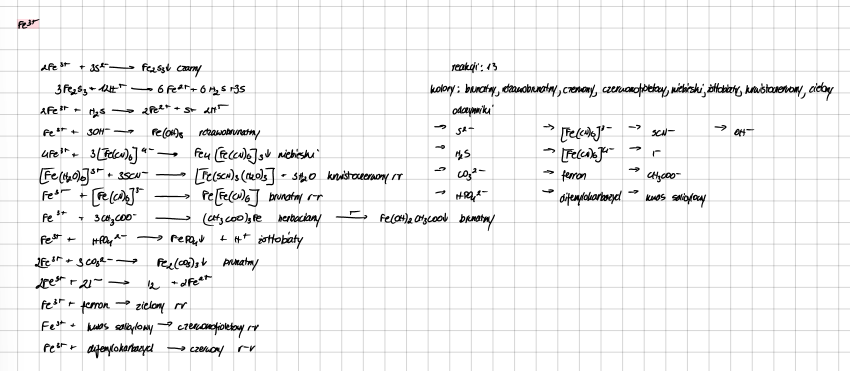 Fe³⁺
2Fe³⁺ + 3S²⁻ → Fe₂S₃↓ czarny
3Fe₂S₃ + 12H⁺ → 6Fe²⁺ + 6H₂S + 3S
2Fe³⁺ + H₂S → 2Fe²⁺ + S + 2H⁺
Fe³⁺ + 3OH⁻ → Fe(OH)₃ rdzawobrunatny
4Fe³⁺ + 3[Fe(CN)₆]⁴⁻ → Fe₄[Fe(CN)₆]₃↓ niebieski
[Fe(H₂O)₆]³⁺ + 3SCN⁻ → [Fe(SCN)₃(H₂O)₃] + 3H₂O krwistoczerwony r-r
Fe³⁺ + [Fe(CN)₆]³⁻ → Fe[Fe(CN)₆] brunatny r-r
Fe³⁺ + 3CH₃COO⁻ → (CH₃COO)₃Fe herbaciany → Fe(OH)₂CH₃COO↓ brunatny
Fe³⁺ + HPO₄²⁻ → FePO₄↓ + H⁺ żółtobiały
2Fe³⁺ + 3CO₃²⁻ → Fe₂(CO₃)₃↓ brunatny
2Fe³⁺ + 2I⁻ → I₂ + 2Fe²⁺
Fe³⁺ + ferron → zielony r-r
Fe³⁺ + kwas salicylowy → czerwonofioletowy r-r
Fe³⁺ + difenylokarbazyd → czerwony r-r
reakcji: 13
kolory: brunatny, rdzawobrunatny, czerwony, czerwonofioletowy, niebieski, żółtobiały, krwistoczerwony, zielony
odczynniki
→ S²⁻ → [Fe(CN)₆]³⁻ → SCN⁻ → OH⁻
→ H₂S → [Fe(CN)₆]⁴⁻ → I⁻
→ CO₃²⁻ → ferron → CH₃COO⁻
→ HPO₄²⁻ → difenylokarbazyd → kwas salicylowy